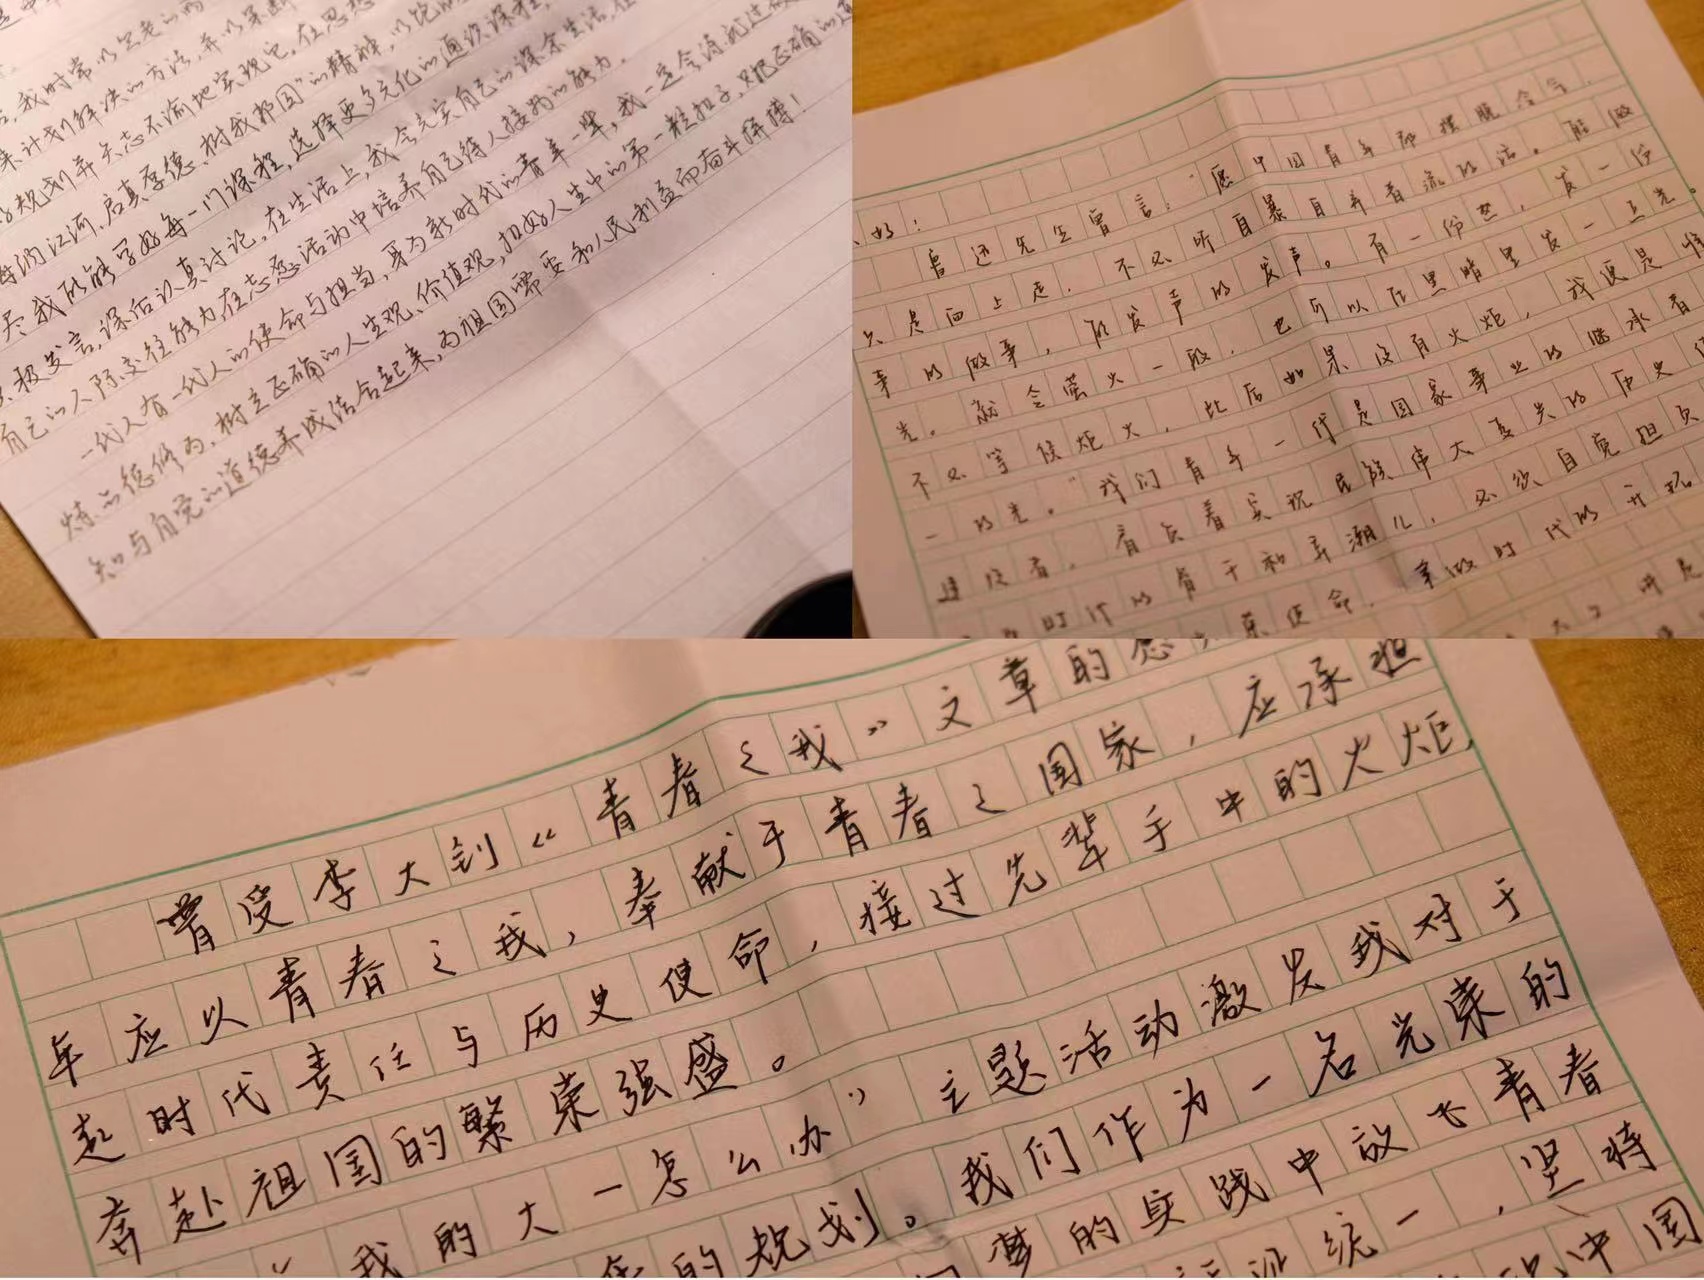 我时常以
来计划解决的方法,并以果断
规划并矢志不渝地实现它。在思想
海纳江河,启真厚德,树我邦国"的精神,以饱
尽我所能学好每一门课程,选择更多元化的通识课程,
积极发言,课后认真讨论。在生活上,我会充实自己的课余生活,在
自己的人际交往能力,在志愿活动中培养自己待人接物的能力。
一代人有一代人的使命与担当,身为新时代的青年一辈,我一定会
品德修为,树立正确的人生观、价值观,扣好人生中的第一粒扣子,把正确的道
知与自觉的道德养成结合起来,为祖国需要和人民利益而奋斗拼搏!
好:
鲁迅先生曾言:“愿中国青年都摆脱冷气,
只是向上走,不必听自暴自弃者流的话。能做
事的做事,能发声的发声。有一份热,发一份
光,就令萤火一般,也可以在黑暗里发一点光,
不必等候炬火,此后如果没有火炬,我便是惟
一的光。”我们青年一代是国家事业的继承者
建设者,肩负着实现民族伟大复兴的历史使
时代的骨干和弄潮儿,必须自觉担负
使命,争做时代的开拓
曾受李大钊《青春之我》文章的
年应以青春之我,奉献于青春之国家,应承担
起时代责任与历史使命,接过先辈手中的火炬,
奔赴祖国的繁荣强盛。
“我的大一怎么办”主题活动激发我对于
的规划。我们作为一名光荣的
梦的实践中放飞青春
统一,坚持
中国